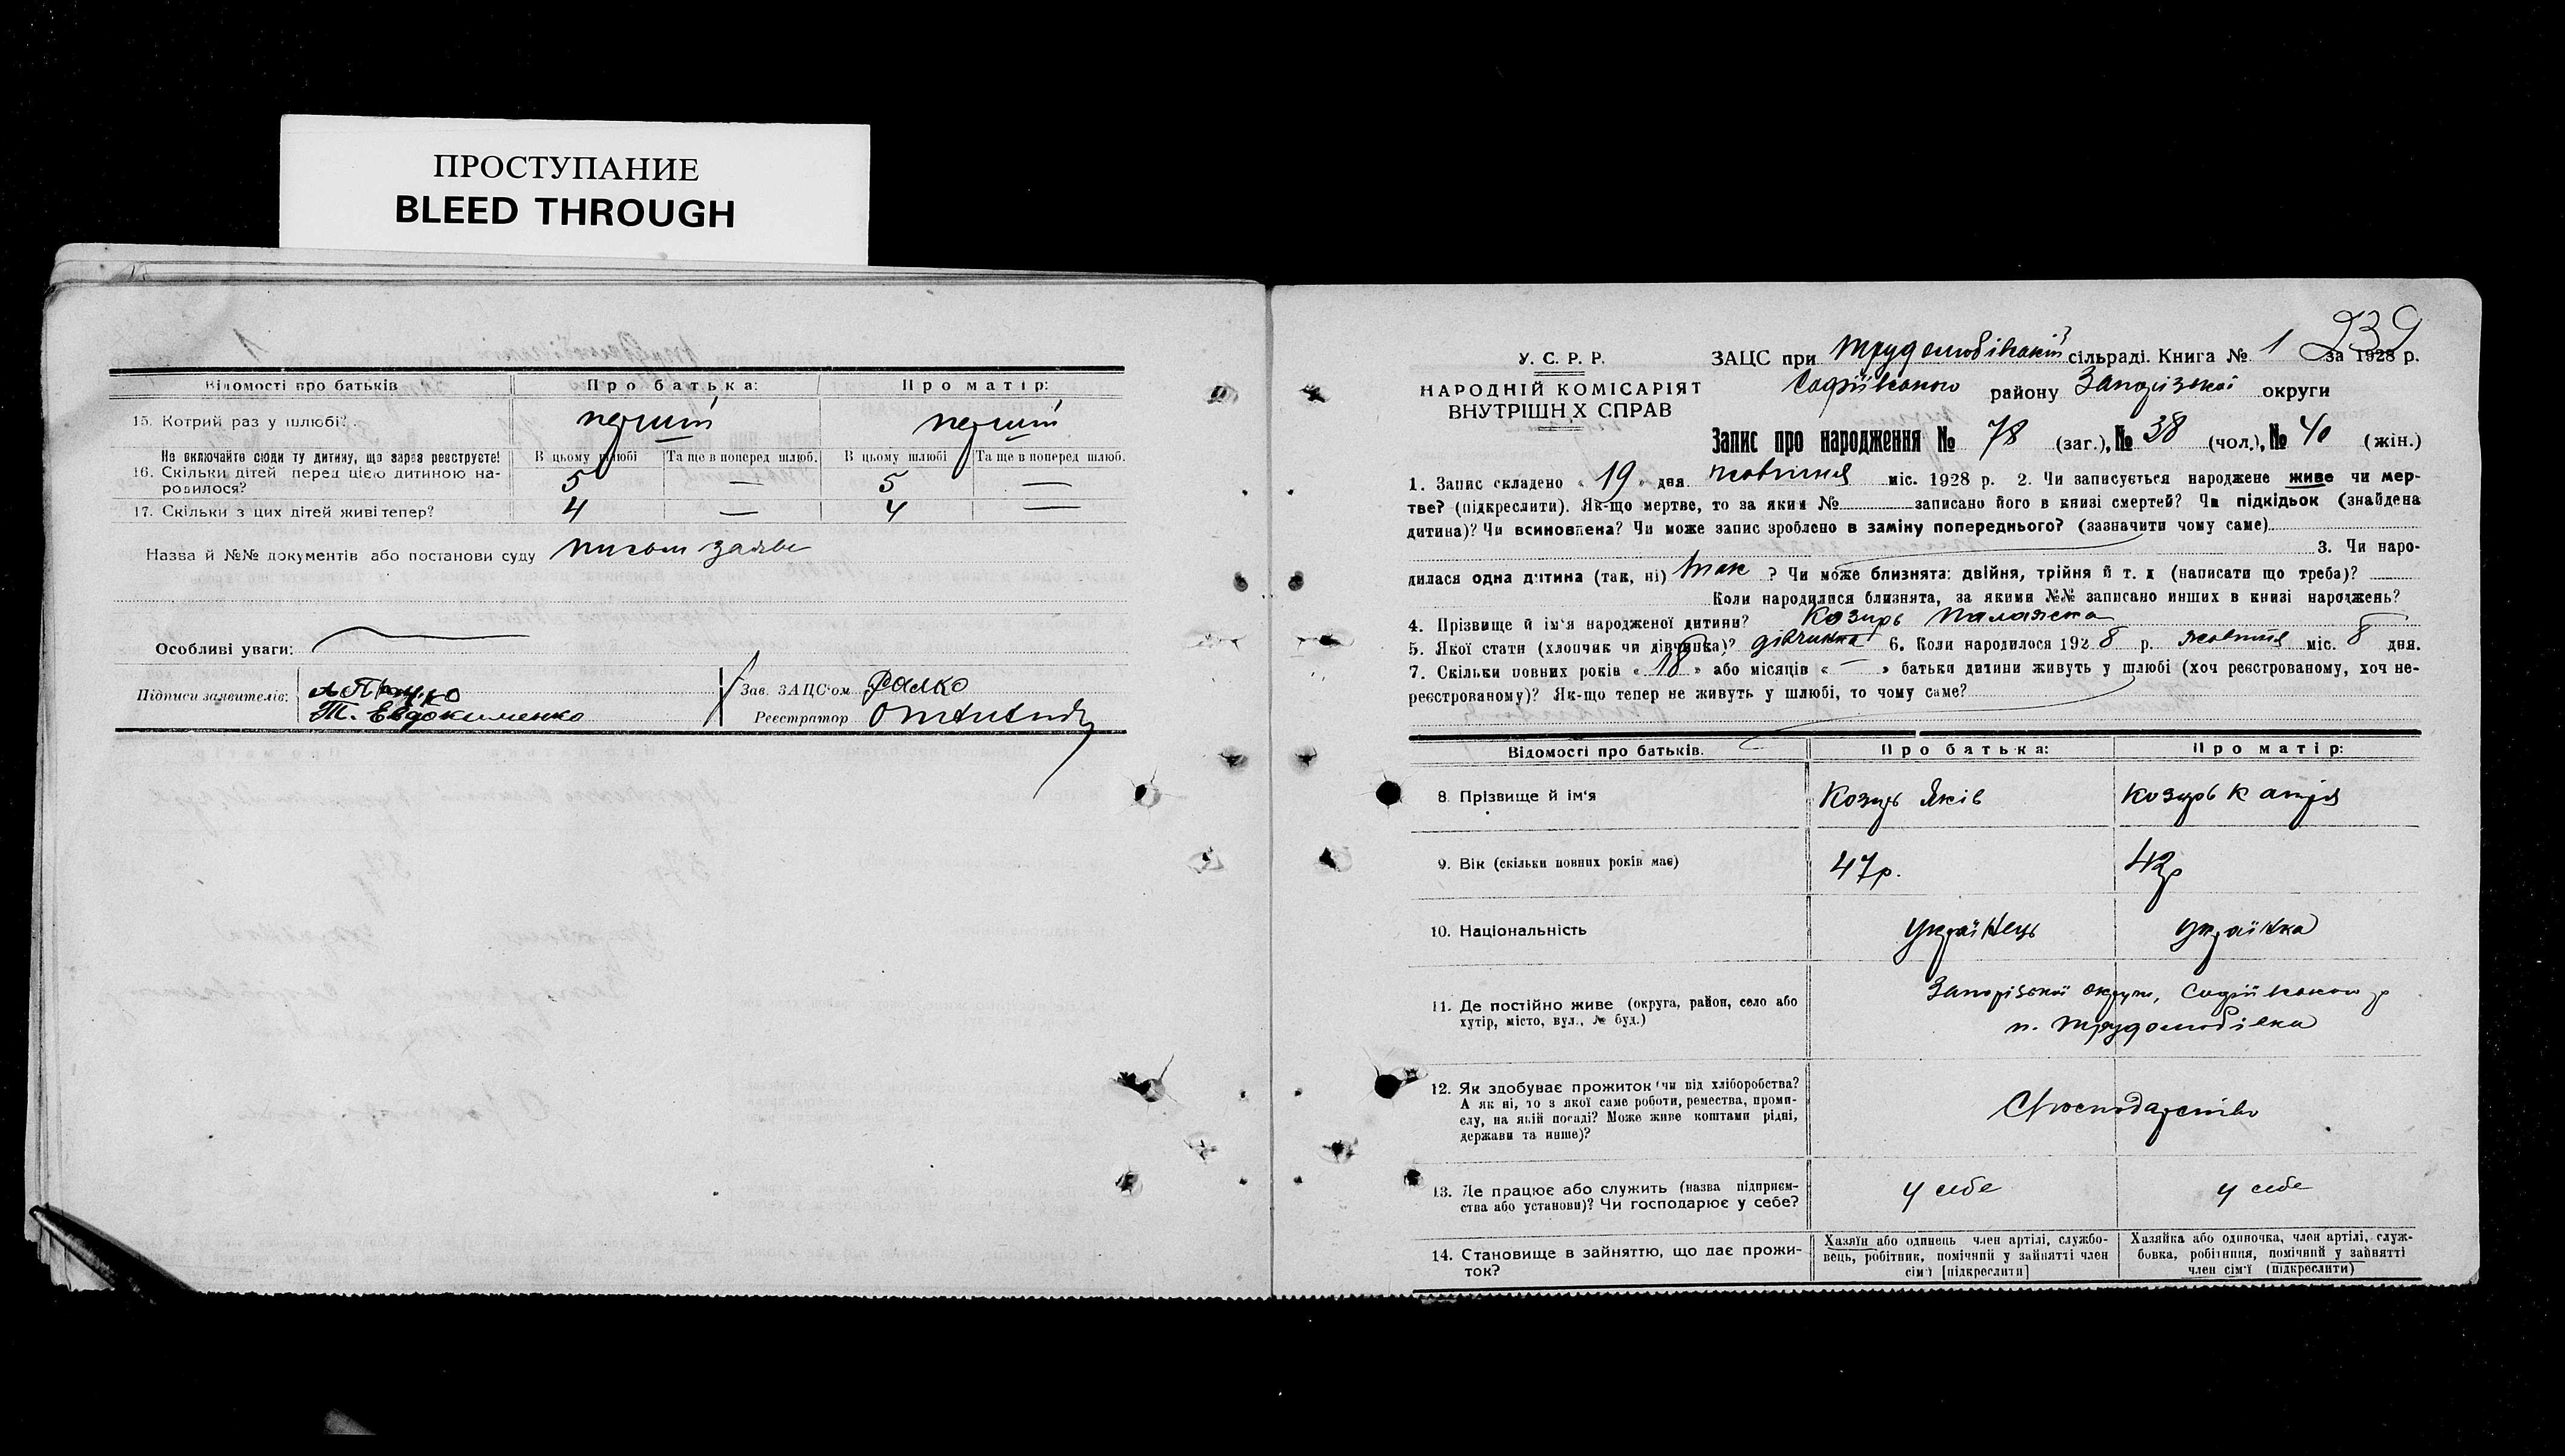 ПРОСТУПАНИЕ
BLEED THROUGH
Відомості про батьків
Про батька:
Про матір:
15. Котрий раз у шлюбі?
перший
перший
Не включайте сюди ту дитину, що зараз реєструєте!
В цьому шлюбі
Та ще в поперед шлюб.
В цьому шлюбі
Та ще в поперед шлюб.
16. Скільки дітей перед цією дитиною на-
родилося?
5 — 5 —
17. Скільки з цих дітей живі тепер?
4 — 4 —
Назва й №№ документів або постанови суду
Особливі уваги:
Підписи заявителів:
Т. Евдокименко
Зав. ЗАЦС'ом Фалко
Реєстратор
239
У. С. Р. Р.
НАРОДНІЙ КОМІСАРІЯТ
ВНУТРІШН Х СПРАВ
ЗАЦС при Трудолюбівській сільраді. Книга № 1 за 1928 р.
Софіївського району Запорізької округи
Запис про народження № 78 (заг.), № 38 (чол.), № 40 (жін.)
1. Запис складено « 19 » дня жовтня міс. 1928 р. 2. Чи записується народжене живе чи мер-
тве? (підкреслити). Як-що мертве, то за яким № записано його в книзі смертей? Чи підкідьок (знайдена
дитина)? Чи всиновлена? Чи може запис зроблено в заміну попереднього? (зазначити чому саме)
3. Чи наро-
дилася одна дитина (так, ні) так ? Чи може близнята: двійня, трійня й т. д (написати що треба)?
Коли народилися близнята, за якими №№ записано инших в книзі народжень?
4. Прізвище й ім'я народженої дитини? Козирь Палажка
5. Якої стати (хлопчик чи дівчинка)? дівчинка 6. Коли народилося 1928 р. жовтня міс. 8 дня.
7. Скільки повних років « 18 » або місяців « — » батьки дитини живуть у шлюбі (хоч реєстрованому, хоч не-
реєстрованому)? Як-що тепер не живуть у шлюбі, то чому саме?
Відомості про батьків.
Про батька:
Про матір:
8. Прізвище й ім'я
Козирь Яків
Козирь Катря
9. Вік (скільки повних років має)
47р.
42р
10. Національність
Українець
Українка
11. Де постійно живе (округа, район, село або
хутір, місто, вул., № буд.)
Запорізської округи, Софіївського р
п. Трудолюбівка
12. Як здобуває прожиток (чи від хліборобства?
А як ні, то з якої саме роботи, ремества, проми-
слу, на якій посаді? Може живе коштами рідні,
держави та инше)?
С/господарство
13. Де працює або служить (назва підприєм-
ства або установи)? Чи господарює у себе?
у себе
у себе
14. Становище в зайняттю, що дає прожи-
ток?
Хазяїн або одинець член артілі, службо-
вець, робітник, помічний у зайнятті член
сім'ї [підкреслити]
Хазяйка або одиночка, член артілі, служ-
бовка, робітниця, помічний у зайнятті
член сім'ї (підкреслити)